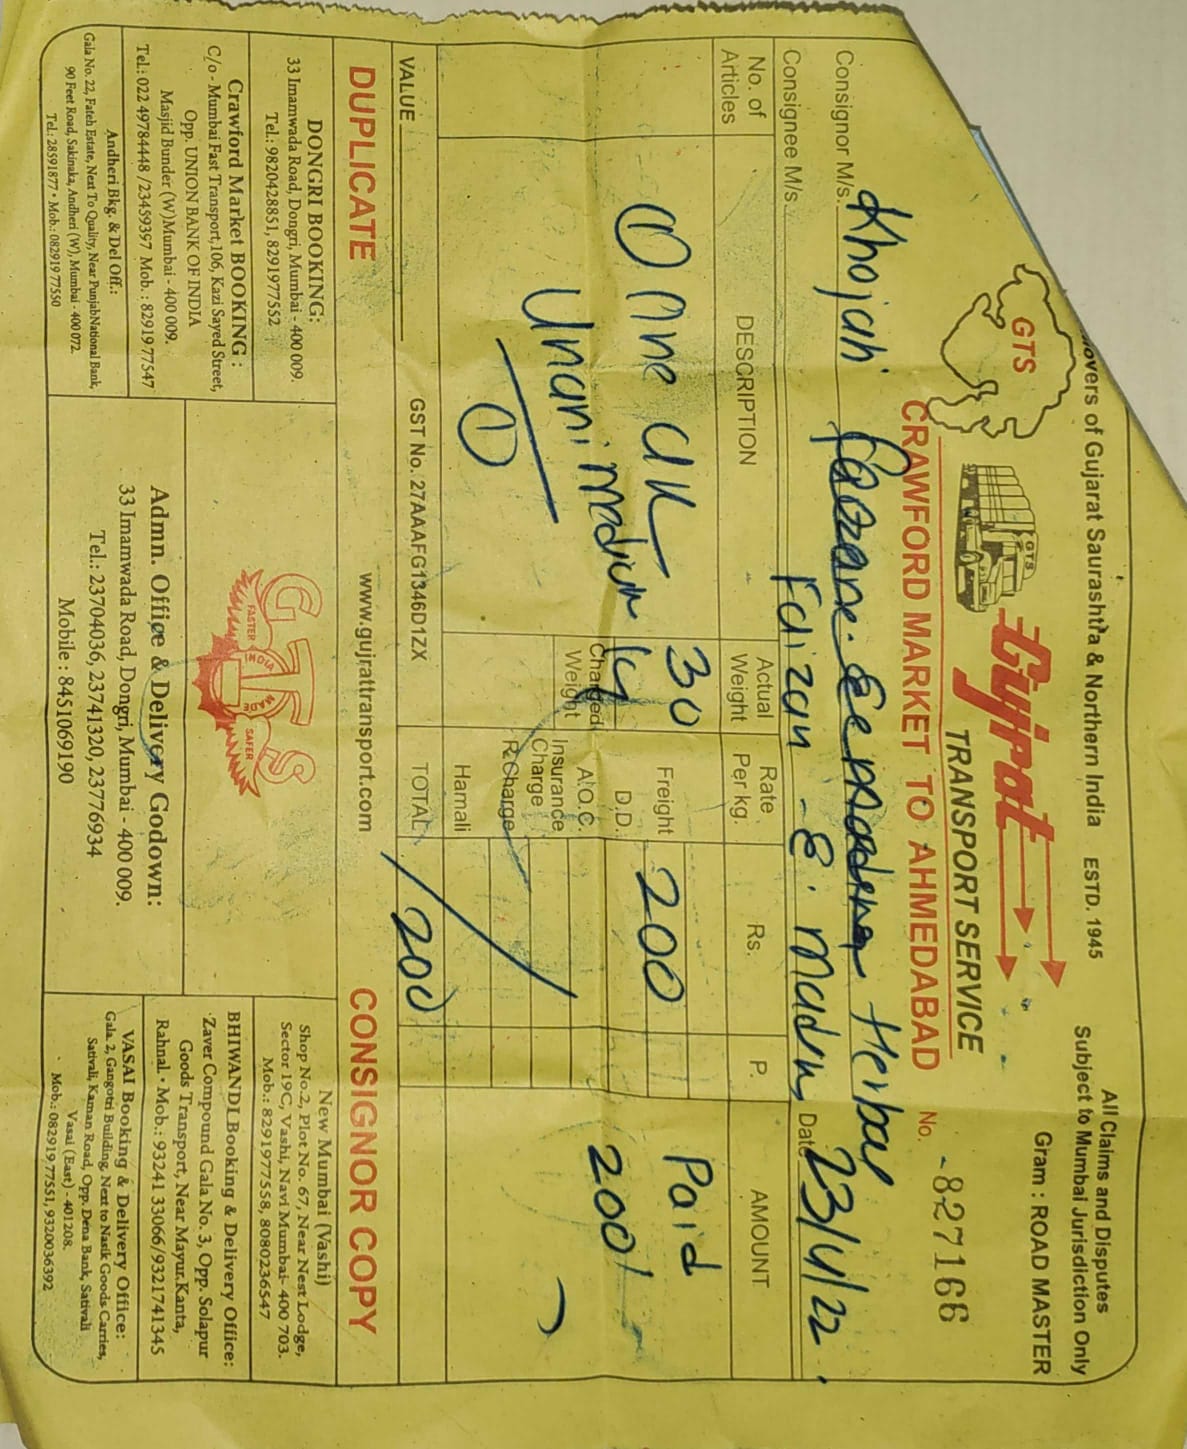 overs of Gujarat Saurashtra & Northern India ESTD. 1945
All Claims and Disputes
Subject to Mumbai Jurisdiction Only
Gram : ROAD MASTER
GTS
GTS
Gujrat
TRANSPORT SERVICE
CRAWFORD MARKET TO AHMEDABAD
No. - 827166
Consignor M/s. Khojah Herbal
Consignee M/s. Faizan - E. Madina Date 23/4/22.
No. of Articles DESCRIPTION Actual Weight Rate Per kg. Rs. P. AMOUNT
① One 30 Freight 200 Paid
Unani medium kg D.D. 200/
Charged Weight
A.O.C.
Insurance Charge
① R.Charge
Hamali
VALUE GST No. 27AAAFG1346D1ZX TOTAL 200
DUPLICATE www.gujrattransport.com CONSIGNOR COPY
DONGRI BOOKING:
33 Imamwada Road, Dongri, Mumbai - 400 009.
Tel.: 9820428851, 8291977552
Crawford Market BOOKING :
C/o - Mumbai Fast Transport,106, Kazi Sayed Street,
Opp. UNION BANK OF INDIA
Masjid Bunder (W)Mumbai - 400 009.
Tel.: 022 49784448 /23459397 Mob. : 82919 77547
Andheri Bkg. & Del Off.:
Gala No. 22, Fateh Estate, Next To Quality, Near PunjabNational Bank,
90 Feet Road, Sakinaka, Andheri (W), Mumbai - 400 072.
Tel.: 28591877 • Mob.: 082919 77550
GTS
FASTER INDIA MADE SAFER
Admn. Office & Delivery Godown:
33 Imamwada Road, Dongri, Mumbai - 400 009.
Tel.: 23704036, 23741320, 23776934
Mobile : 845106919​0
New Mumbai (Vashi)
Shop No.2, Plot No. 67, Near Nest Lodge,
Sector 19C, Vashi, Navi Mumbai- 400 703.
Mob.: 8291977558, 8080236547
BHIWANDI Booking & Delivery Office:
Zaver Compound Gala No. 3, Opp. Solapur
Goods Transport, Near Mayur Kanta,
Rahnal. • Mob.: 93241 33066/9321741345
VASAI Booking & Delivery Office:
Gala. 2, Gangotri Building, Next to Nasik Goods Carries,
Sativali, Kaman Road, Opp. Dena Bank, Sativali
Vasai (East) - 401208.
Mob.: 082919 77551, 9320036392